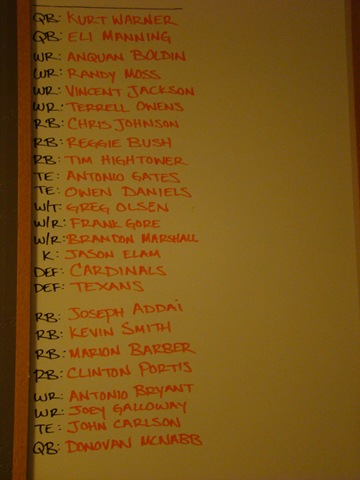 QB: KURT WARNER
QB: ELI MANNING
WR: ANQUAN BOLDIN
WR: RANDY MOSS
WR: VINCENT JACKSON
WR: TERRELL OWENS
RB: CHRIS JOHNSON
RB: REGGIE BUSH
RB: TIM HIGHTOWER
TE: ANTONIO GATES
TE: OWEN DANIELS
W/T: GREG OLSEN
W/R: FRANK GORE
W/R: BRANDON MARSHALL
K: JASON ELAM
DEF: CARDINALS
DEF: TEXANS
RB: JOSEPH ADDAi
RB: KEVIN SMITH
RB: MARION BARBER
RB: CLINTON PORTIS
WR: ANTONIO BRYANT
WR: JOEY GALLOWAY
TE: JOHN CARLSON
QB: DONOVAN MCNABB